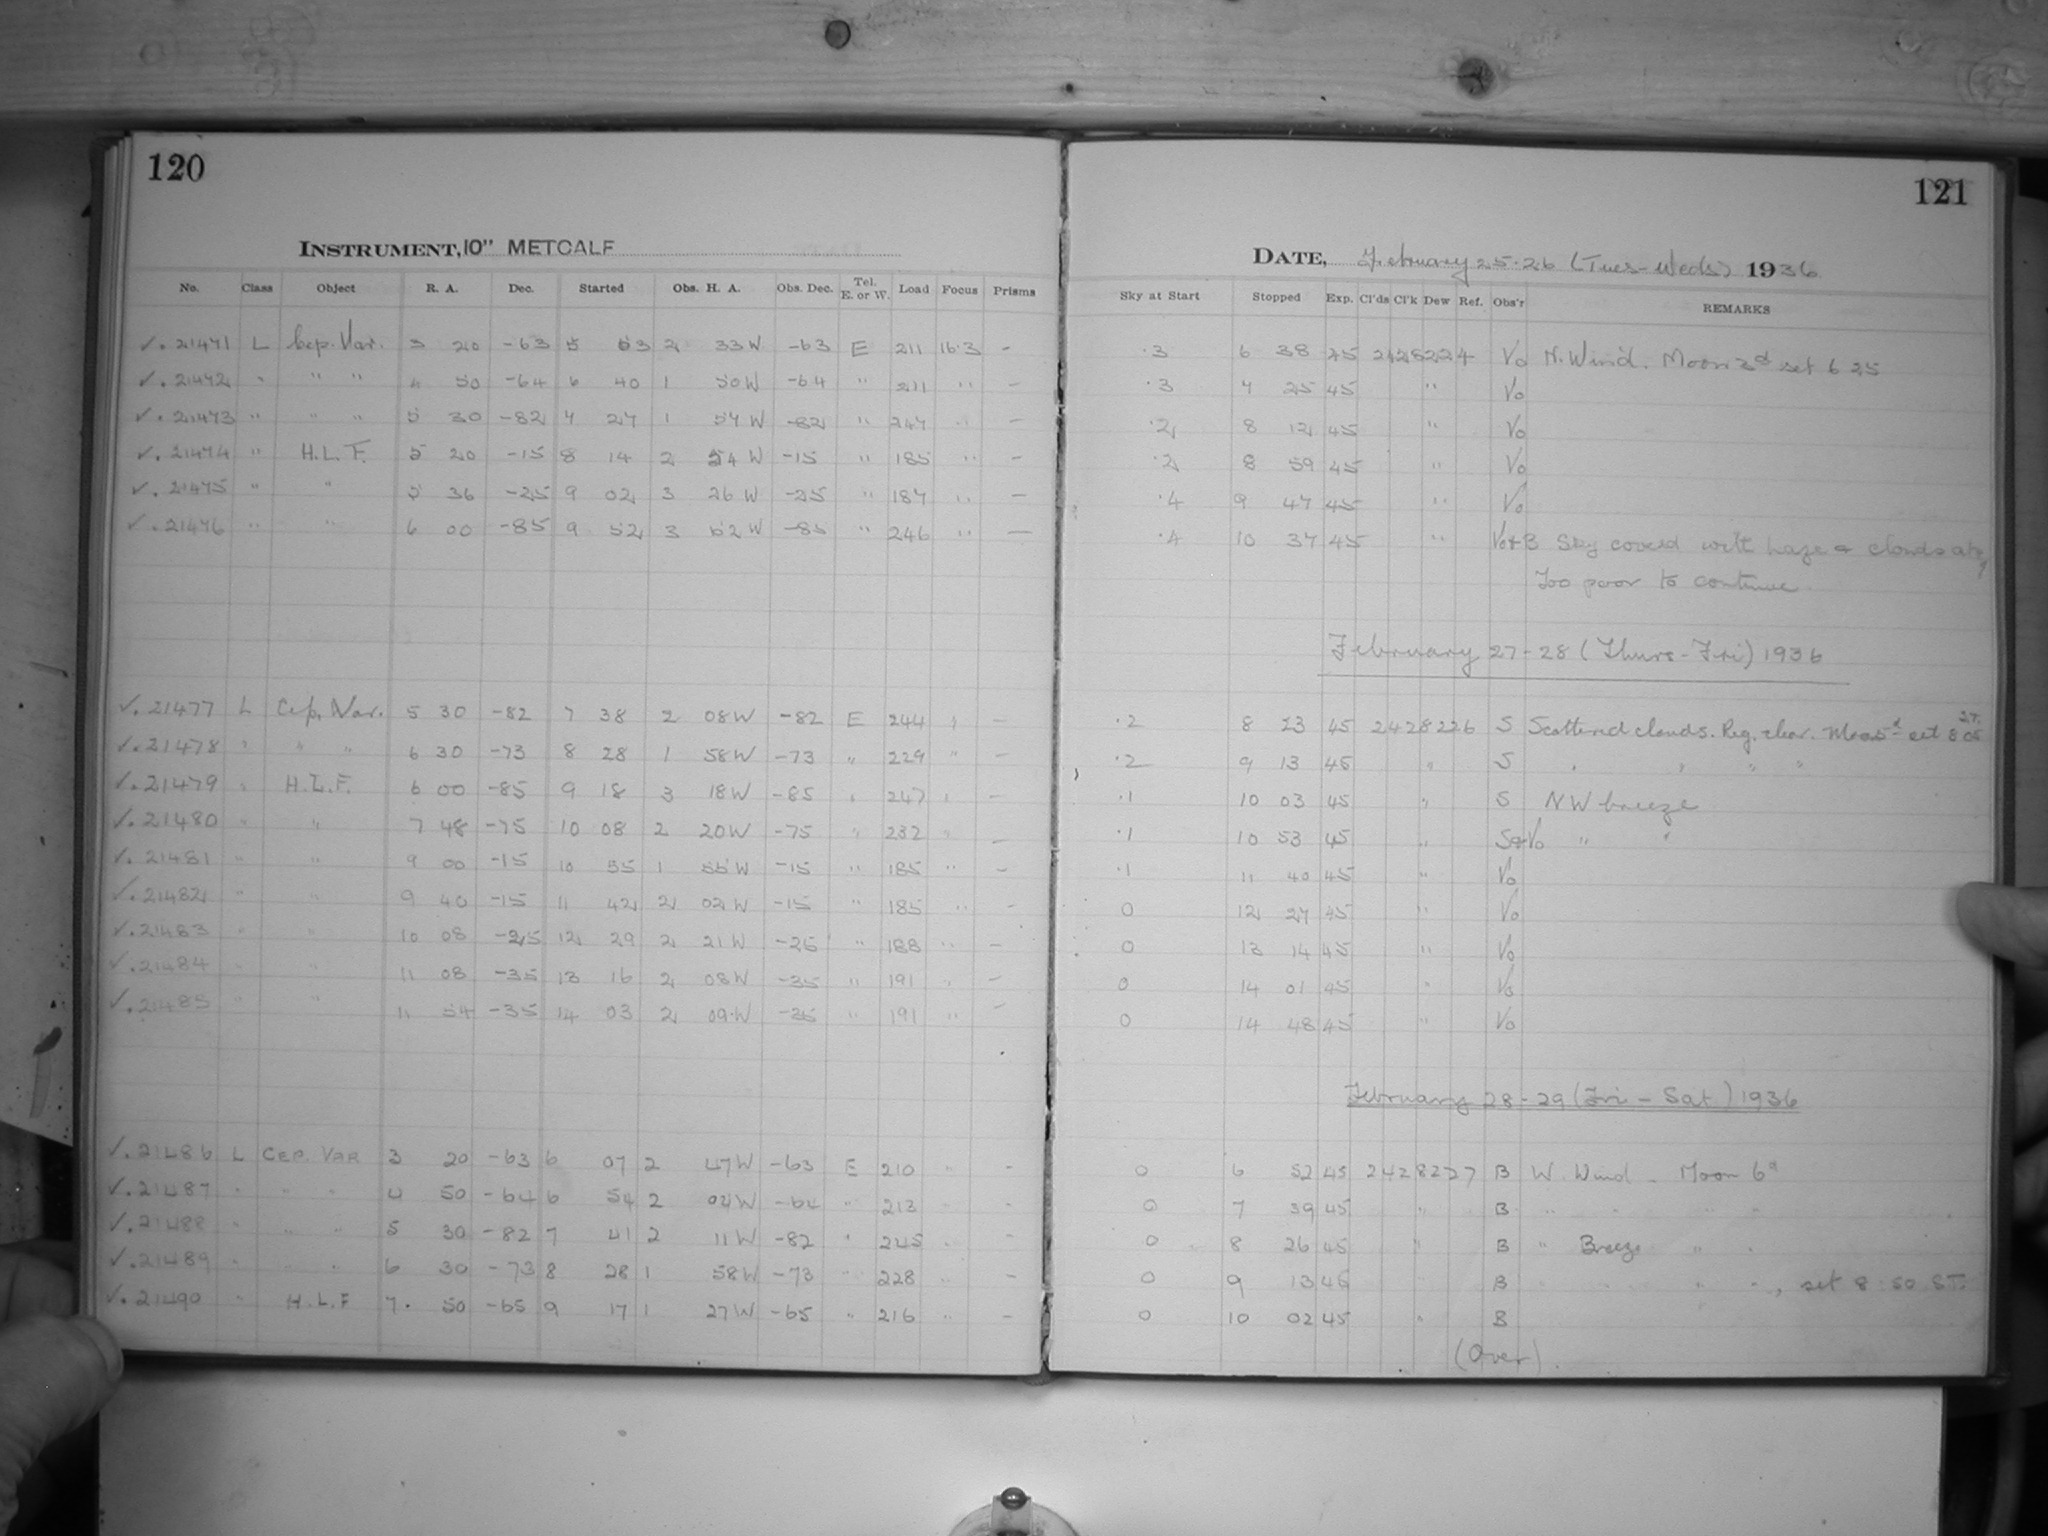 120
INSTRUMENT, 10" METCALF
No. Class Object R. A. Dec. Started Obs. H. A. Obs. Dec. Tel. E. or W. Load Focus Prisms
✓. 21471 L Cep. Var. 3 20 -63 5 53 2 33 W -63 E 211 16.3 -
✓. 21472 " " " 4 50 -64 6 40 1 50 W -64 " 211 " -
✓. 21473 " " " 5 30 -82 7 27 1 57 W -82 " 247 " -
✓. 21474 " H.L.F. 5 20 -15 8 14 2 54 W -15 " 185 " -
✓. 21475 " " 5 36 -25 9 02 3 26 W -25 " 187 " -
✓. 21476 " " 6 00 -85 9 52 3 52 W -85 " 246 " -
✓. 21477 L Cep. Var. 5 30 -82 7 38 2 08 W -82 E 244 " -
✓. 21478 " " " 6 30 -73 8 28 1 58 W -73 " 229 " -
✓. 21479 " H.L.F. 6 00 -85 9 18 3 18 W -85 " 247 " -
✓. 21480 " " 7 48 -75 10 08 2 20 W -75 " 232 " -
✓. 21481 " " 9 00 -15 10 55 1 55 W -15 " 185 " -
✓. 21482 " " 9 40 -15 11 42 2 02 W -15 " 185 " -
✓. 21483 " " 10 08 -25 12 29 2 21 W -25 " 188 " -
✓. 21484 " " 11 08 -35 13 16 2 08 W -35 " 191 " -
✓. 21485 " " 11 54 -35 14 03 2 09 W -35 " 191 " -
✓. 21486 L CEP. VAR 3 20 -63 6 07 2 47 W -63 E 210 " -
✓. 21487 " " " 4 50 -64 6 54 2 04 W -64 " 213 -
✓. 21488 " " " 5 30 -82 7 41 2 11 W -82 " 245 " -
✓. 21489 " " " 6 30 -73 8 28 1 58 W -73 " 228 " -
✓. 21490 " H.L.F 7. 50 -65 9 17 1 27 W -65 " 216 " -
121
DATE, February 25-26 (Tues-Weds) 1936
Sky at Start Stopped Exp. Cl'ds Cl'k Dew Ref. Obs'r REMARKS
.3 6 38 45 2428224 Vo N. Wind. Moon 3d set 6 25
.3 7 25 45 " Vo
.2 8 12 45 " Vo
.2 8 59 45 " Vo
.4 9 47 45 " Vo
.4 10 37 45 " Vo+B Sky coverd with haze & clouds
Too poor to continue
February 27-28 (Thurs-Fri) 1936
.2 8 23 45 2428226 S Scattered clouds. Reg. clear. Moon 5d set 8 05
.2 9 13 45 " S " " " "
.1 10 03 45 " S NW breeze
.1 10 53 45 " S&Vo " "
.1 11 40 45 " Vo
0 12 27 45 " Vo
0 13 14 45 " Vo
0 14 01 45 " Vo
0 14 48 45 " Vo
February 28-29 (Fri-Sat) 1936
0 6 52 45 2428227 B W. Wind - Moon 6d
0 7 39 45 " B " " " "
0 8 26 45 " B " Breeze " "
0 9 13 45 B " " " ", set 8 50 S.T.
0 10 02 45 " B
(Over).